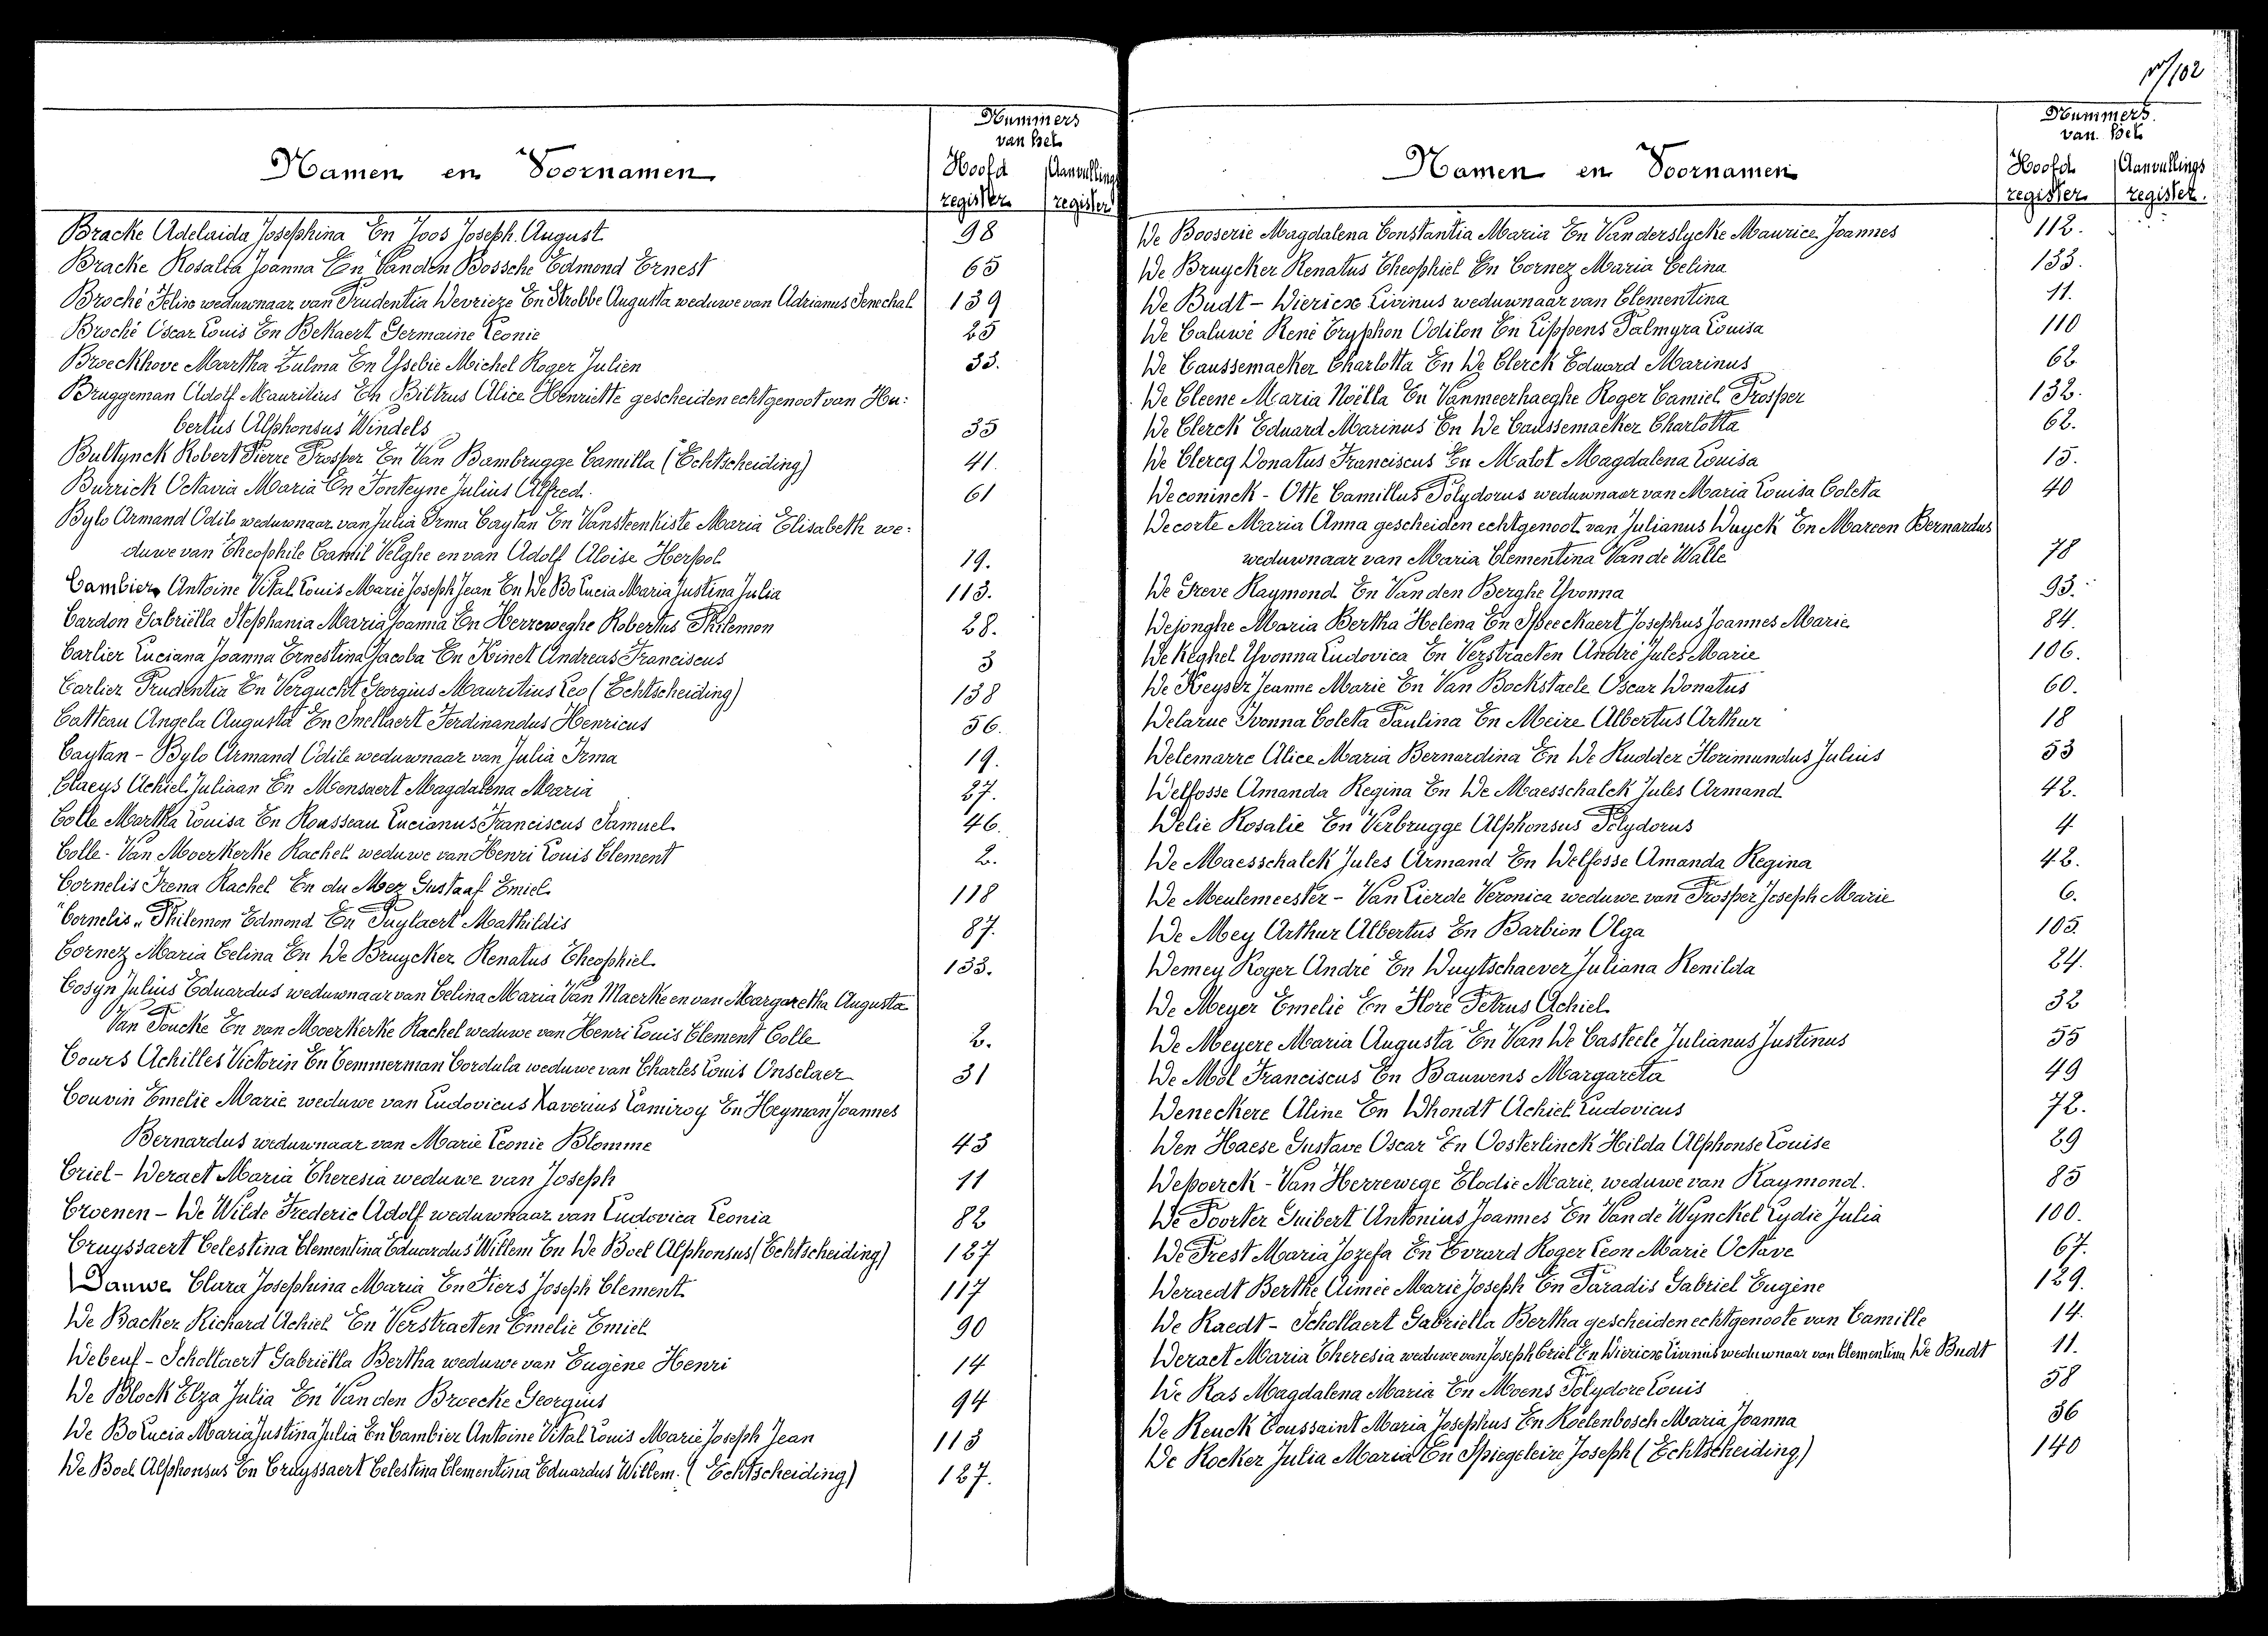 102
Nummers
van het
Namen en Voornamen
Hoofd Aanvullings
register register
Bracke Adelaida Josephina En Joos Joseph August 98
Bracke Rosalia Joanna En Vanden Bossche Edmond Ernest 65
Broché Felix weduwnaar van Prudentia Devrieze En Strobbe Augusta weduwe van Adrianus Senechal 139
Broché Oscar Louis En Bekaert Germaine Leonie 25
Broeckhove Martha Zulma En Ysebie Michel Roger Julien 33.
Bruggeman Adolf Mauritius En Bittrus Alice Henriette gescheiden echtgenoot van Hu:
bertus Alphonsus Windels 35
Bultynck Robert Pierre Prosper En Van Bambrugge Camilla (Echtscheiding) 41.
Burrick Octavia Maria En Fonteyne Julius Alfred. 61
Bylo Armand Odilo weduwnaar van Julia Irma Caytan En Vansteenkiste Maria Elisabeth we:
duwe van Theophile Camil Velghe en van Adolf Aloise Herpol 19.
Cambier Antoine Vital Louis Marie Joseph Jean En De Bo Lucia Maria Justina Julia 113.
Cardon Gabriëlla Stephania Maria Joanna En Herreweghe Robertus Philemon 28.
Carlier Luciana Joanna Ernestina Jacoba En Kinet Andreas Franciscus 3
Carlier Prudentia En Vergucht Georgius Mauritius Leo (Echtscheiding) 138
Catteau Angela Augusta En Snellaert Ferdinandus Henricus 56.
Caytan - Bylo Armand Odile weduwnaar van Julia Irma 19.
Claeys Achiel Juliaan En Mensaert Magdalena Maria 27.
Colle Martha Louisa En Rousseau Lucianus Franciscus Samuel 46.
Colle - Van Moerkerke Rachel weduwe van Henri Louis Clement 2.
Cornelis Irena Rachel En du Mez Gustaaf Emiel 118
"Cornelis" Philemon Edmond En Puylaert Mathildis 87.
Cornez Maria Celina En De Bruycker Renatus Theophiel 133.
Cosyn Julius Eduardus weduwnaar van Celina Maria Van Maerke en van Margaretha Augusta
Van Poucke En van Moerkerke Rachel weduwe van Henri Louis Clement Colle 2.
Cours Achilles Victorin En Temmerman Cordula weduwe van Charles Louis Onselaer 31
Couvin Emelie Marie weduwe van Ludovicus Xaverius Lamiroy En Heyman Joannes
Bernardus weduwnaar van Marie Leonie Blomme 43
Criel - Deraet Maria Theresia weduwe van Joseph 11
Croenen - De Wilde Frederic Adolf weduwnaar van Ludovica Leonia 82
Cruyssaert Celestina Clementina Eduardus Willem En De Boel Alphonsus (Echtscheiding) 127
Dauwe Clara Josephina Maria En Fiers Joseph Clement 117
De Backer Richard Achiel En Verstraeten Emelie Emiel 90
Debeuf - Schollaert Gabriëlla Bertha weduwe van Eugène Henri 14
De Block Elza Julia En Van den Broecke Georgius 94
De Bo Lucia Maria Justina Julia En Cambier Antoine Vital Louis Marie Joseph Jean 113
De Boel Alphonsus En Cruyssaert Celestina Clementina Eduardus Willem. (Echtscheiding) 127.
Nummers
van het
Namen en Voornamen
Hoofd Aanvullings
register register.
De Booserie Magdalena Constantia Maria En Vanderslycke Maurice Joannes 112.
De Bruycker Renatus Theophiel En Cornez Maria Celina 133.
De Budt - Dierickx Livinus weduwnaar van Clementina 11.
De Caluwé René Tryphon Odilon En Lippens Palmyra Louisa 110
De Caussemacker Charlotta En De Clerck Eduard Marinus 62
De Cleene Maria Noëlla En Vanmeerhaeghe Roger Camiel Prosper 132.
De Clerck Eduard Marinus En De Caussemacker Charlotta 62.
De Clercq Donatus Franciscus En Malot Magdalena Louisa 15.
Deconinck - Otte Camillus Polydorus weduwnaar van Maria Louisa Coleta 40
Decorte Maria Anna gescheiden echtgenoot van Julianus Duyck En Mareen Bernardus
weduwnaar van Maria Clementina Van de Walle 78
De Greve Raymond En Van den Berghe Yvonna 93.
Dejonghe Maria Bertha Helena En Speeckaert Josephus Joannes Marie 84.
De Keghel Yvonna Ludovica En Verstraeten André Jules Marie 106.
De Keyser Jeanne Marie En Van Bockstaele Oscar Donatus 60.
Delarue Ivonna Coleta Paulina En Meire Albertus Arthur 18
Delemarre Alice Maria Bernardina En De Rudder Florimundus Julius 53
Delfosse Amanda Regina En De Maesschalck Jules Armand 42.
Delie Rosalie En Verbrugge Alphonsus Polydorus 4
De Maesschalck Jules Armand En Delfosse Amanda Regina 42.
De Meulemeester - Van Lierde Veronica weduwe van Prosper Joseph Marie 6.
De Mey Arthur Albertus En Barbion Olga 105.
Demey Roger André En Duytschaever Juliana Renilda 24.
De Meyer Emelie En Floré Petrus Achiel 32
De Meyere Maria Augusta En Van De Casteele Julianus Justinus 55
De Mol Franciscus En Bauwens Margareta 49
Deneckere Aline En Dhondt Achiel Ludovicus 72.
Den Haese Gustave Oscar En Oosterlinck Hilda Alphonse Louise 29
Depoerck - Van Herrewege Elodie Marie, weduwe van Raymond. 85
De Poorter Guibert Antonius Joannes En Van de Wynckel Lydie Julia 100.
De Prest Maria Jozefa En Evrard Roger Leon Marie Octave 67.
Deraedt Berthe Aimée Marie Joseph En Paradis Gabriel Eugène 129.
De Raedt - Schollaert Gabriella Bertha gescheiden echtgenoote van Camille 14.
Deraet Maria Theresia weduwe van Joseph Criel En Dierickx Livinus weduwnaar van Clementina De Budt 11.
De Ras Magdalena Maria En Moens Polydore Louis 58
De Reuck Toussaint Maria Josephus En Roelenbosch Maria Joanna 36
De Rocker Julia Maria En Spiegeleire Joseph (Echtscheiding) 140